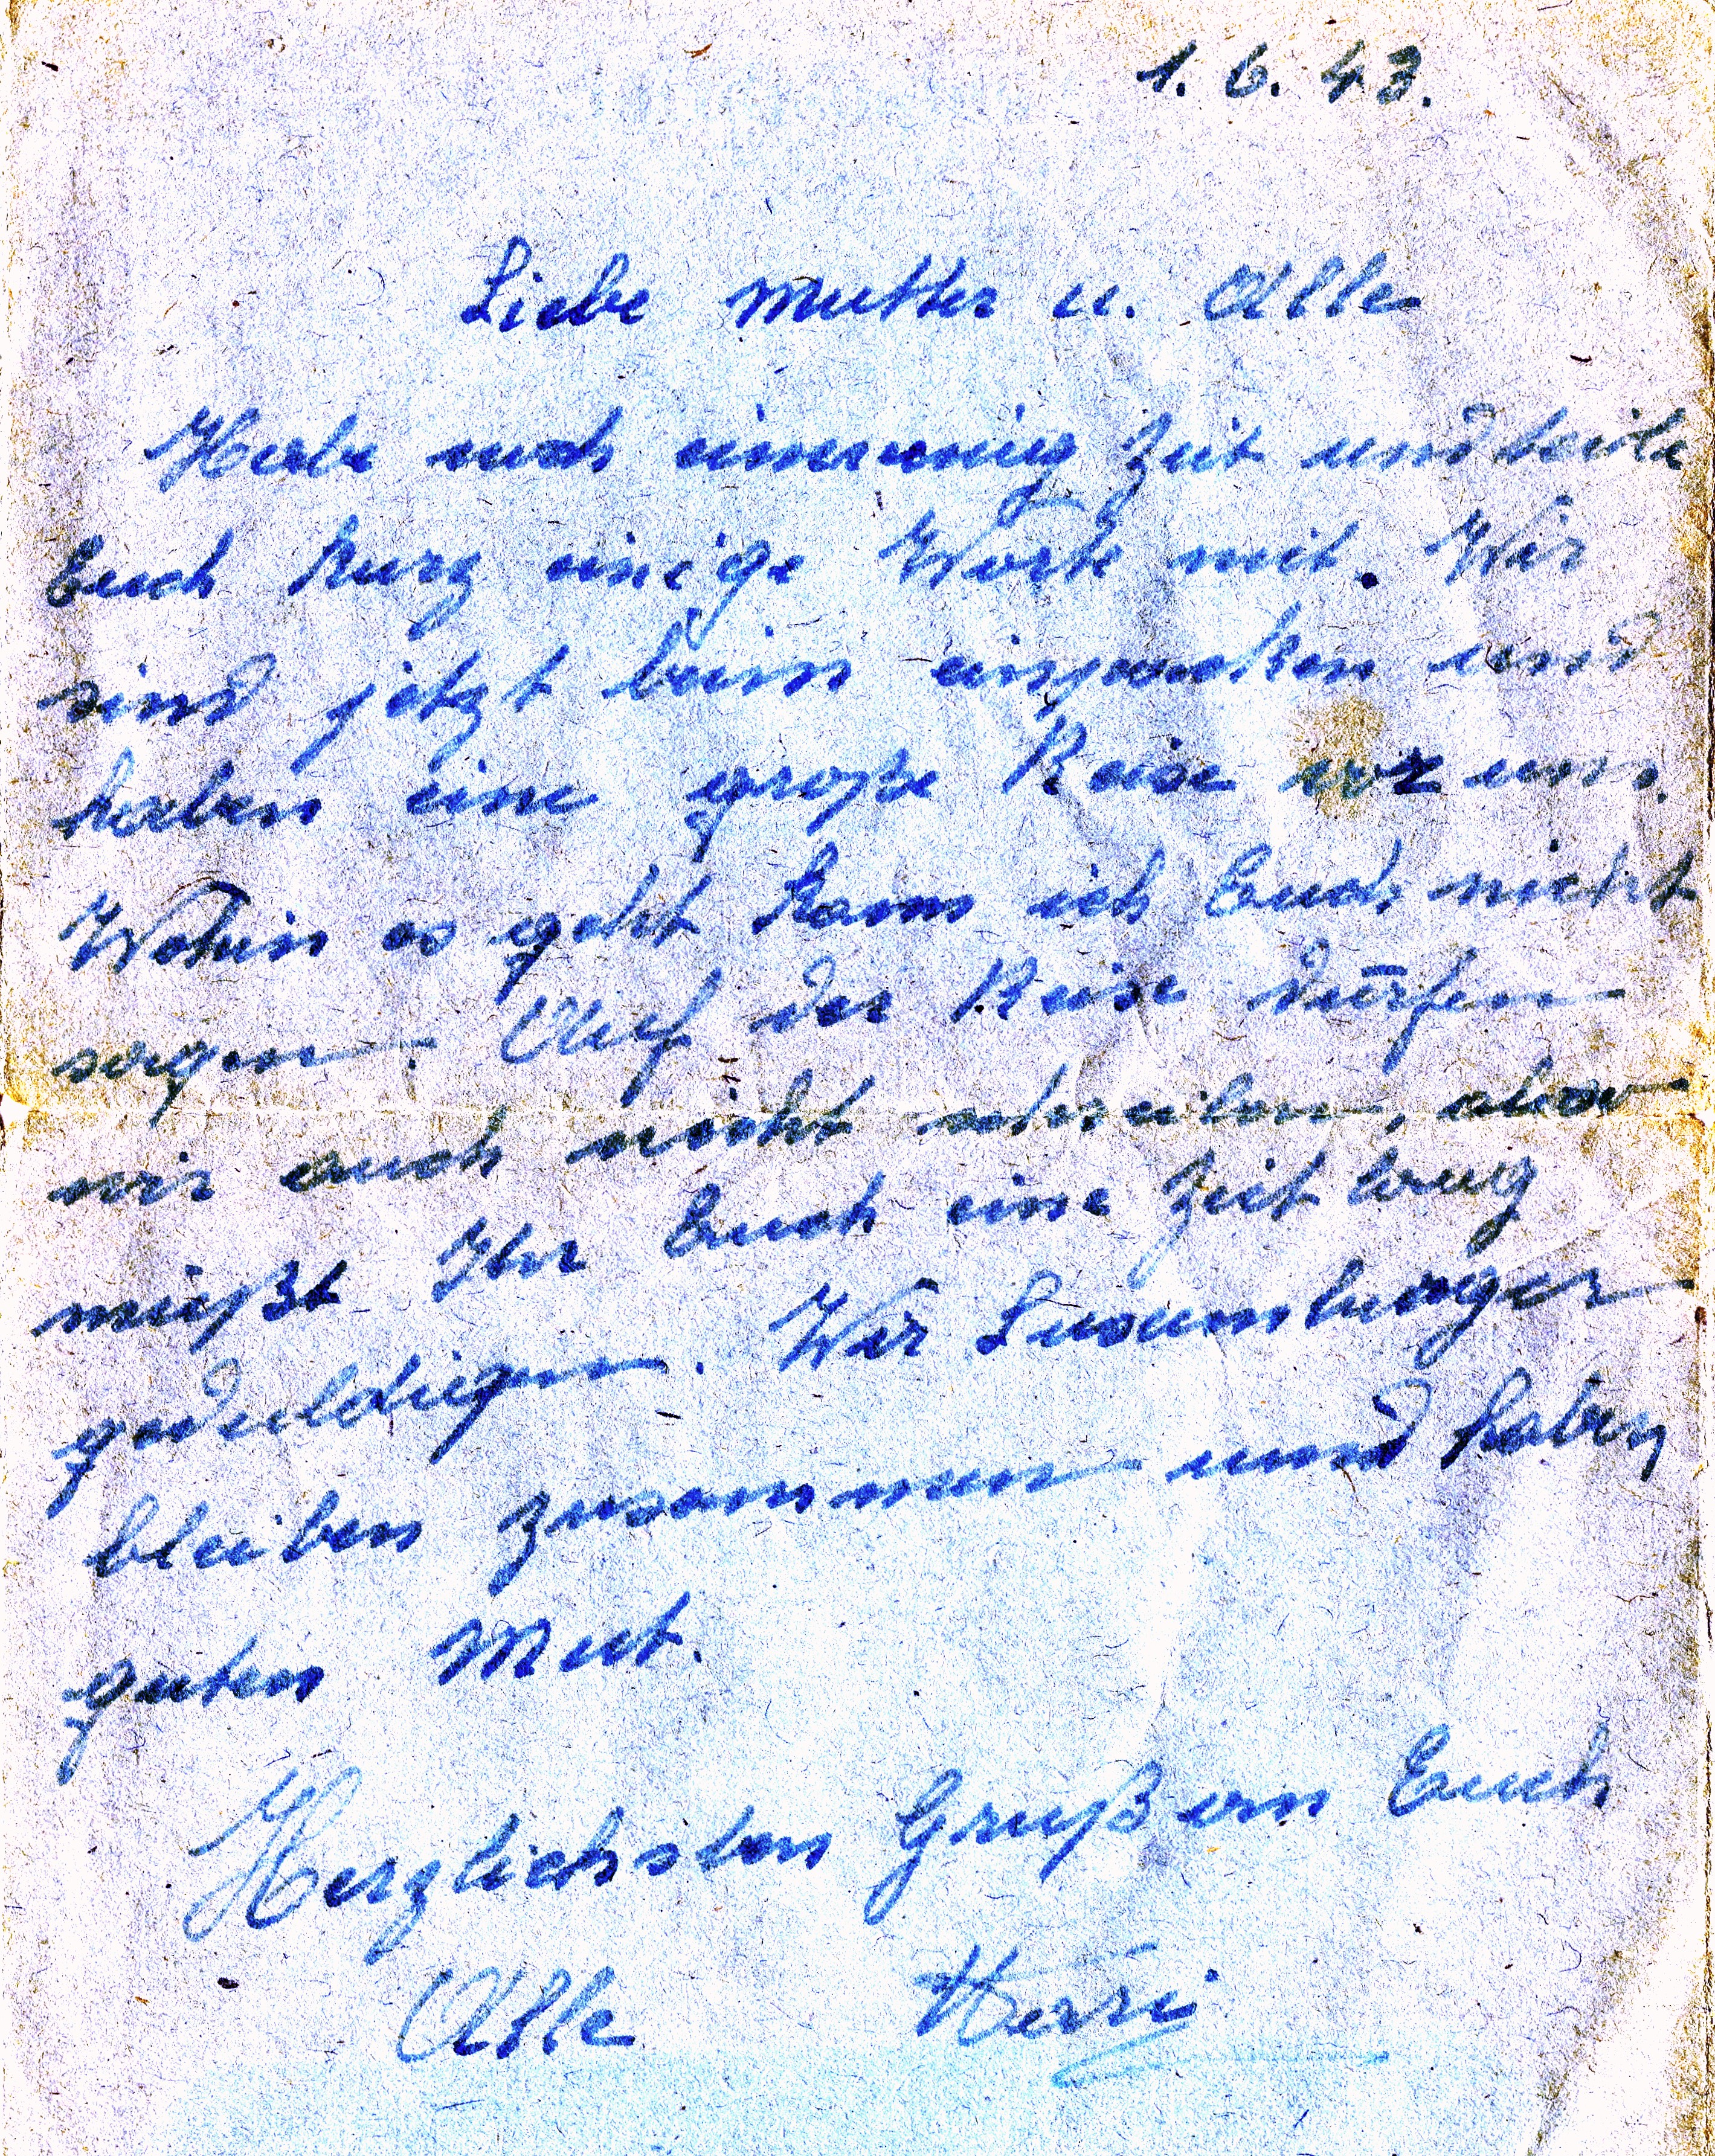 1. 6. 43.
Liebe Mutter u. Alle
Habe noch ein wenig Zeit und teile
Euch kurz einige Worte mit. Wir
sind jetzt beim einpacken und
haben eine große Reise vor uns.
Wohin es geht kann ich Euch nicht
sagen. Auf der Reise dürfen
wir auch nicht schreiben, also
müßt Ihr Euch eine Zeit lang
geduldigen. Wir Luxemburger
bleiben zusammen und haben
guten Mut.
Herzlichsten Gruß an Euch
Alle Herri